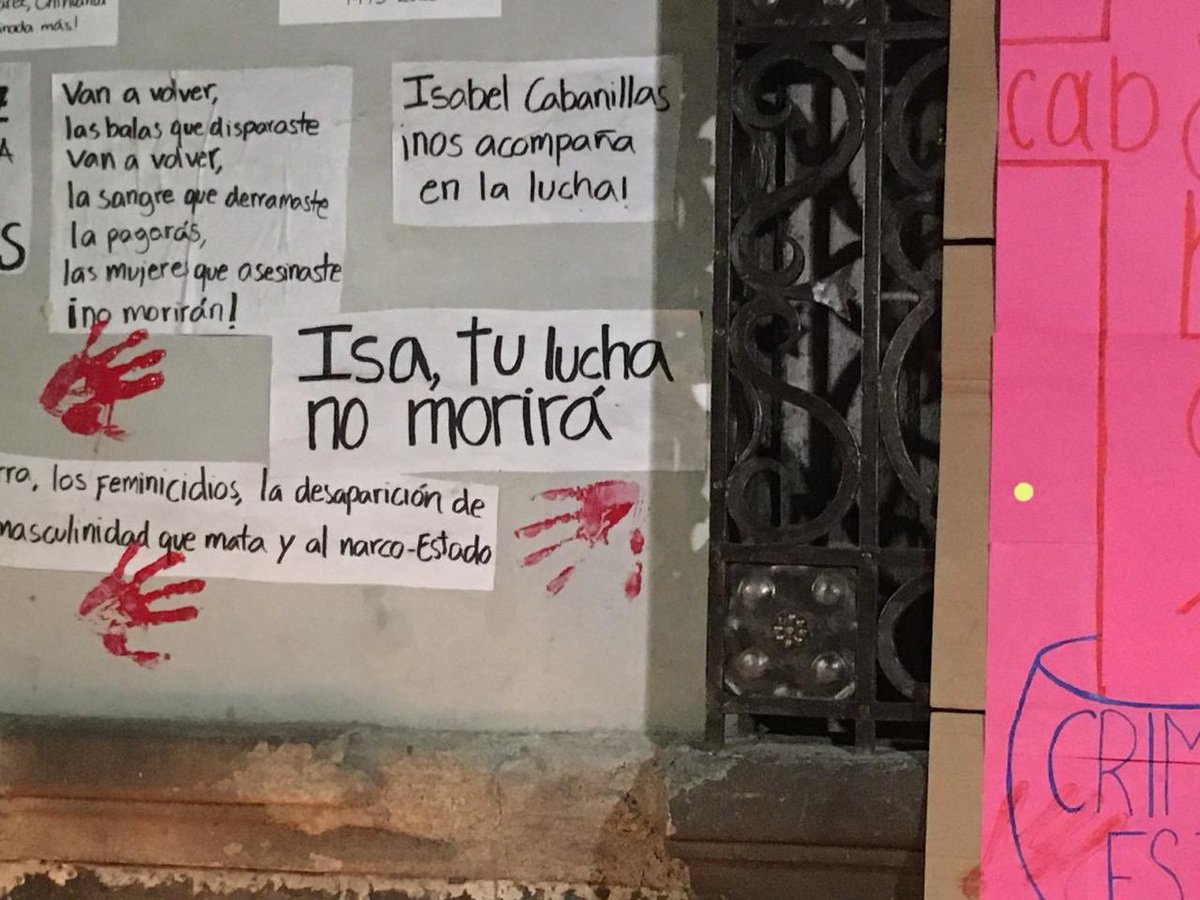 nada más!
Van a volver,
las balas que disparaste
van a volver,
la sangre que derramaste
la pagarás,
las mujeres que asesinaste
¡no morirán!
Isabel Cabanillas
¡nos acompaña
en la lucha!
Isa, tu lucha
no morirá
los feminicidios, la desaparición de
masculinidad que mata y al narco-Estado
cab
CRIM
EST